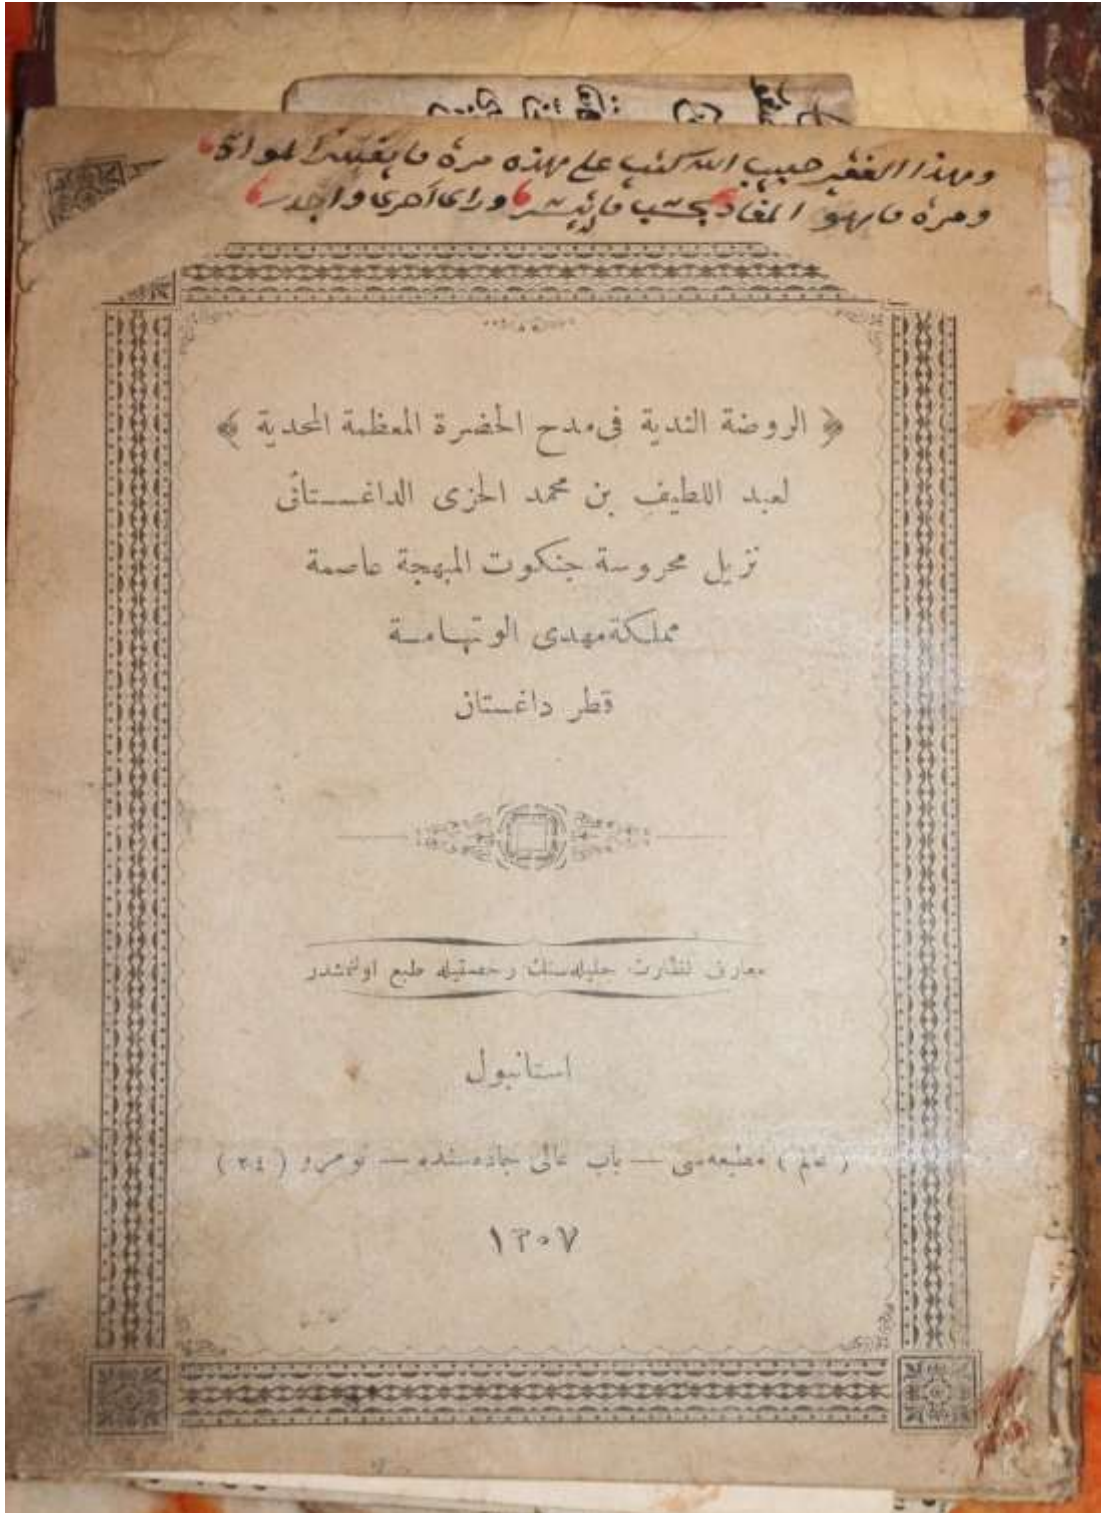 وهذا الفقير حبيب الله كتب على هذه مرة ما يقتضيه المواة
ومرة ما هو المفاد بحسب ما يتيسر ورای احری واجدر
﴿ الروضة الندية فی مدح الحضرة المعظمة المحمدية ﴾
لعبد اللطيف بن محمد الحزی الداغستانی
نزيل محروسة جنكوت المبهجة عاصمة
مملكة مهدی الوتهامة
قطر داغستان
معارف نظارت جليله سنك رخصتيله طبع اولنمشدر
استانبول
( عالم ) مطبعه سی — باب عالی جاده سنده — نومرو ( ٢٤ )
١٣٠٧